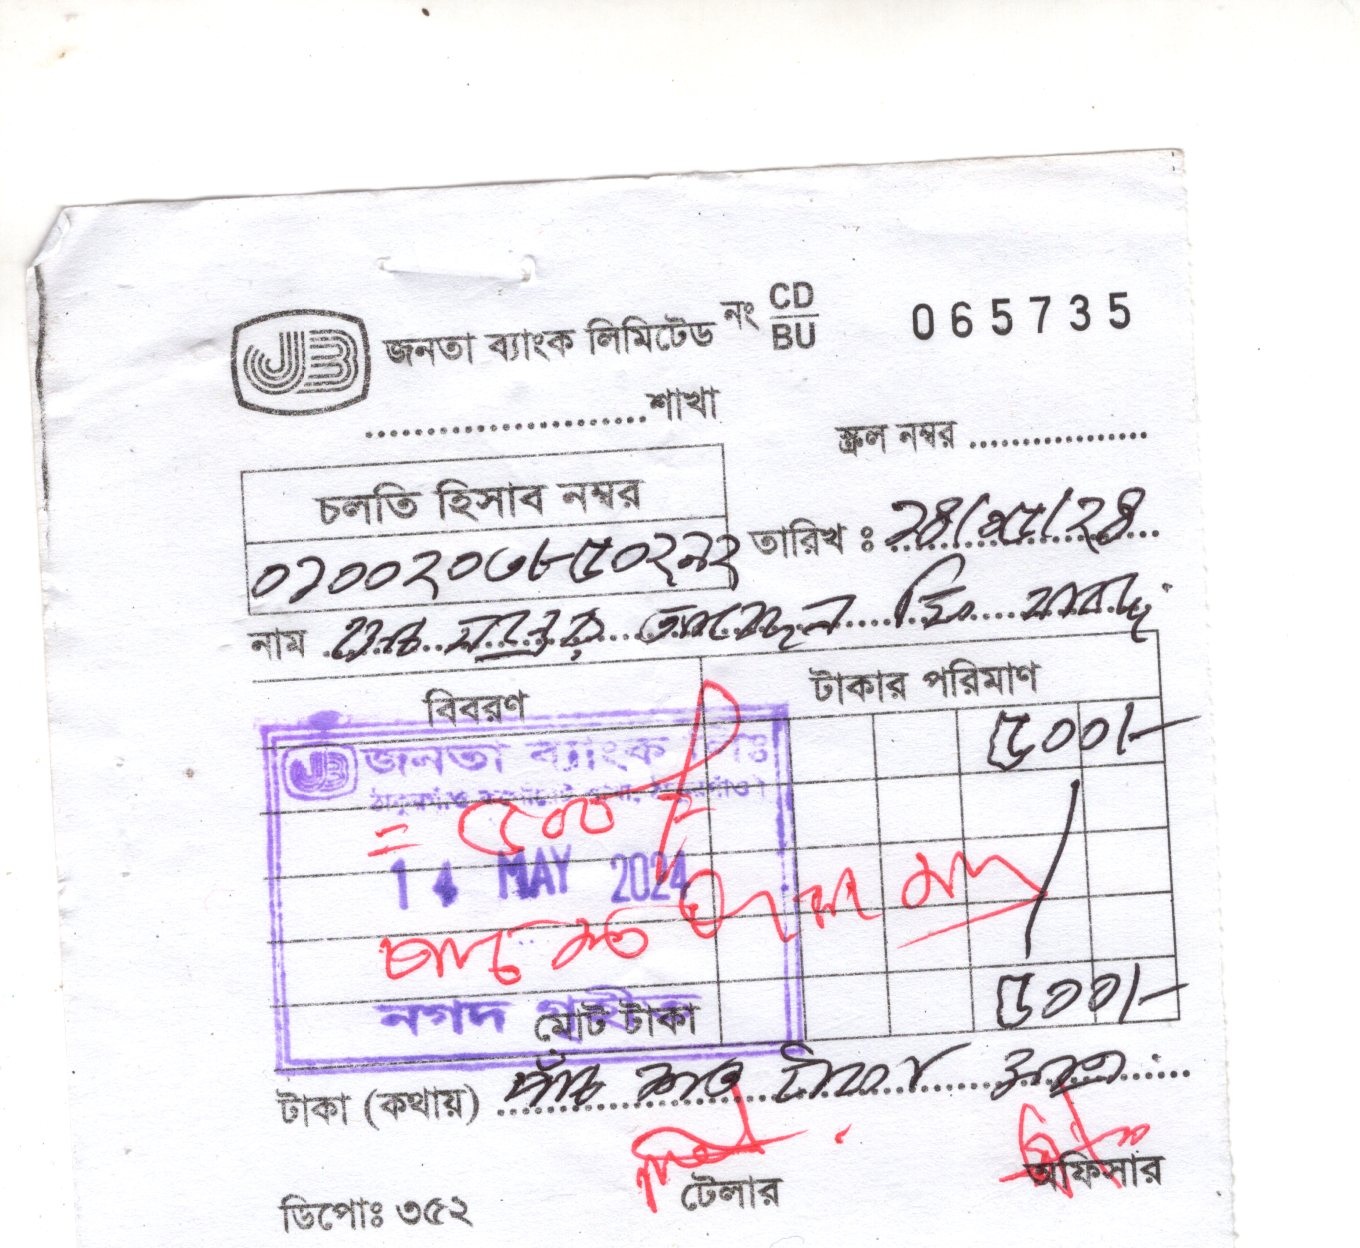 JB জনতা ব্যাংক লিমিটেড নং CD/BU 065735
....................শাখা
স্ক্রল নম্বর ..................
চলতি হিসাব নম্বর
তারিখ : ১৪/০৫/২৪
০১০০২০৩৮৫০২৯২
নাম
বিবরণ
টাকার পরিমাণ
৫০০/-
JB জনতা ব্যাংক লিঃ
= ৫০০
14 MAY 2024
মোট টাকা ৫০০/-
নগদ গ্রহীত
টাকা (কথায়) পাঁচ শত টাকা মাত্র
টেলার
অফিসার
ডিপোঃ ৩৫২